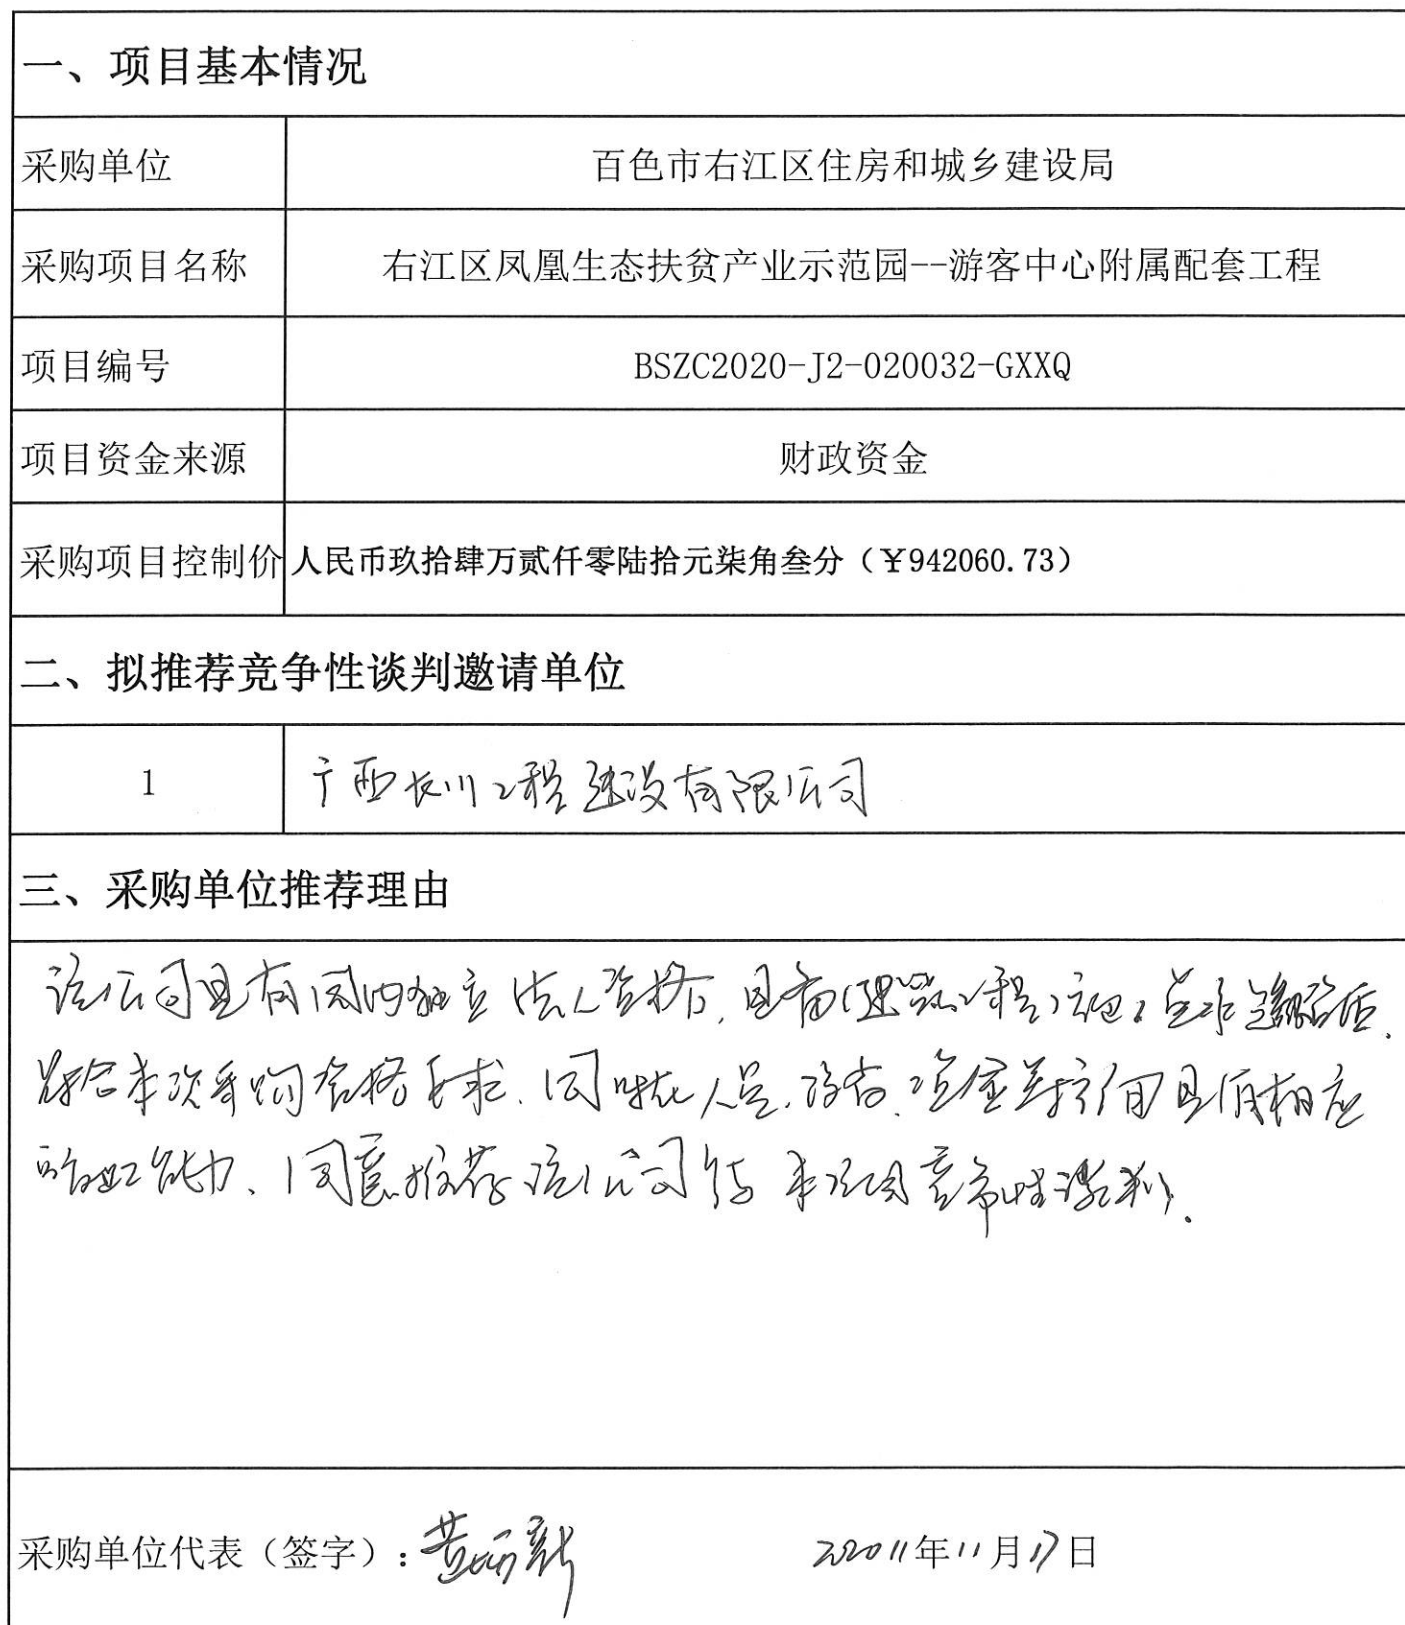 一、项目基本情况
采购单位 百色市右江区住房和城乡建设局
采购项目名称 右江区凤凰生态扶贫产业示范园--游客中心附属配套工程
项目编号 BSZC2020-J2-020032-GXXQ
项目资金来源 财政资金
采购项目控制价 人民币玖拾肆万贰仟零陆拾元柒角叁分（￥942060.73）
二、拟推荐竞争性谈判邀请单位
1 广西长川工程建设有限公司
三、采购单位推荐理由
该公司具有国内独立法人资格,具备建筑工程施工总承包资质,
符合本次采购资格要求,同时在人员、设备、资金等方面具有相应
的施工能力,同意推荐该公司参与本项目竞争性谈判.
采购单位代表（签字）: 年11月17日